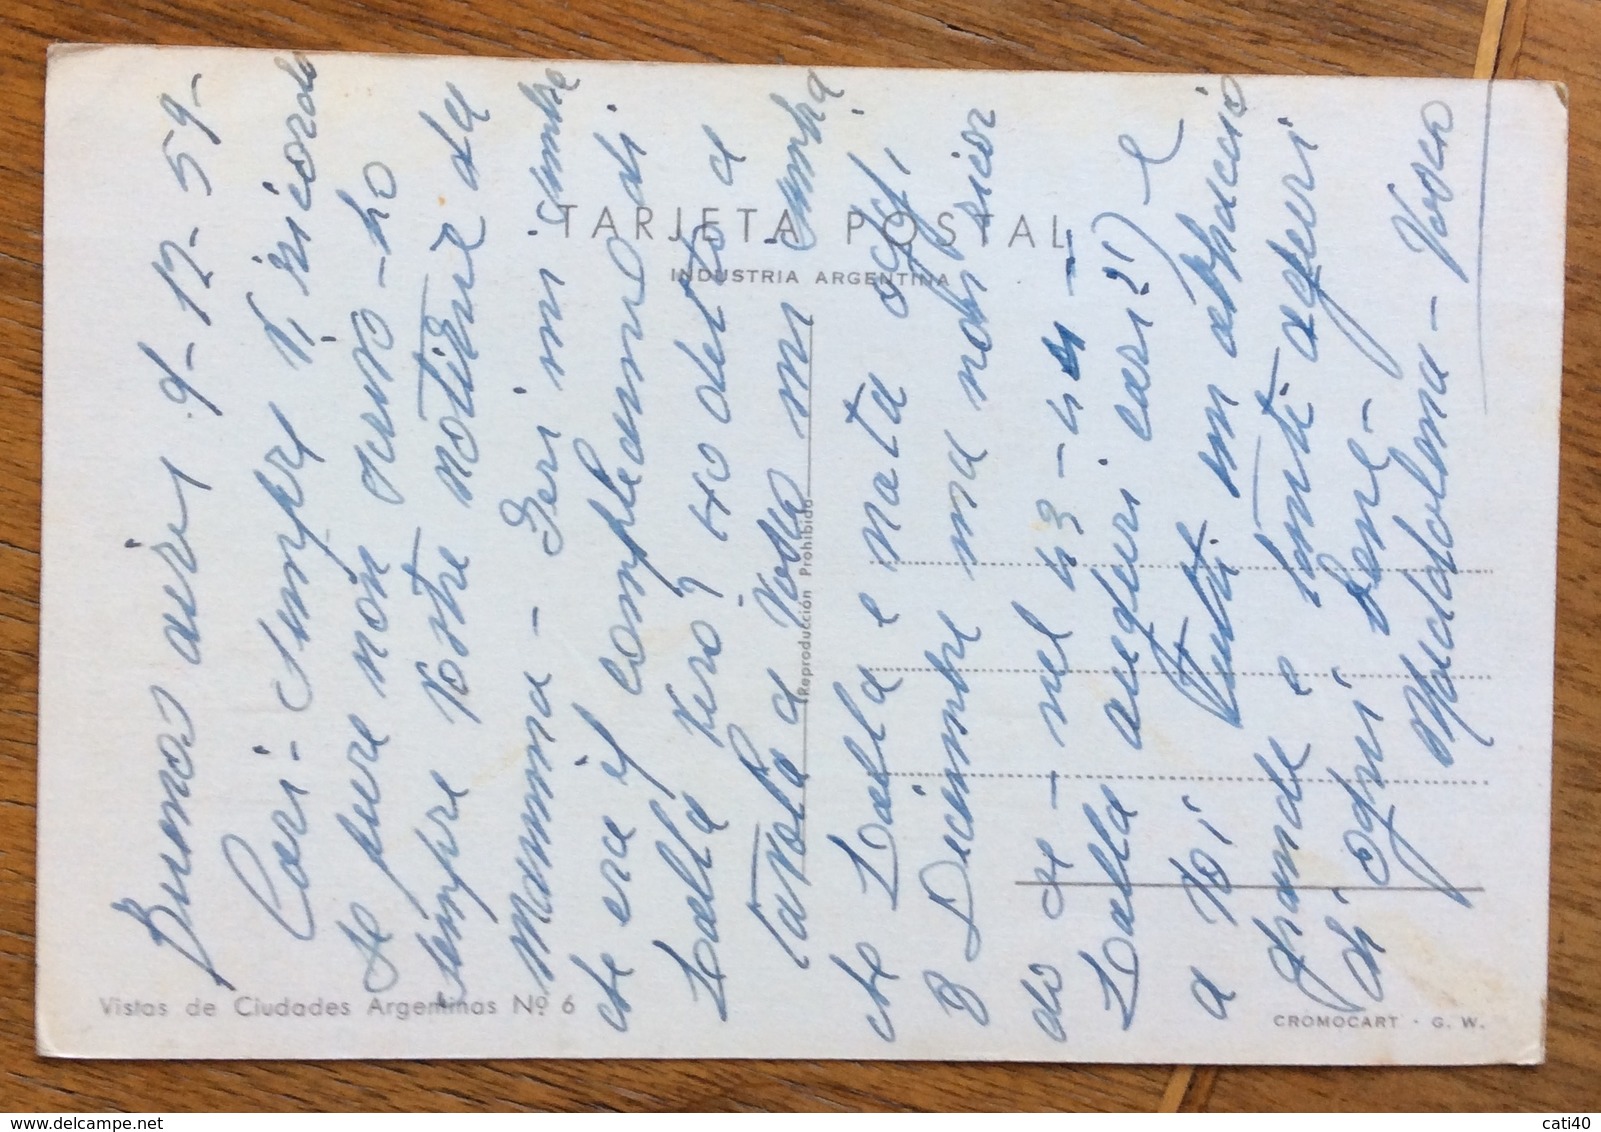 TARJETA POSTAL
INDUSTRIA ARGENTINA
Reproducción Prohibido
Vistas de Ciudades Argentinas Nº 6
CROMOCART - G. W.
Buenos aires 9-12-59-
Cari - sempre Vi ricordo
se pure non scrivo - ho
sempre vostre notizie da
mammina - Ieri mi sembra
che era il compleanno di
Lalla vero? ho detto a
tavola a
che Lalla e nata oggi
8 Decimbre ma non ricor
do se - nel 43-44-
Lalla auguri cari e
a Voi tutti un abbraccio
grande e tanti auguri
di ogni bene -
Maddalena -
cati40